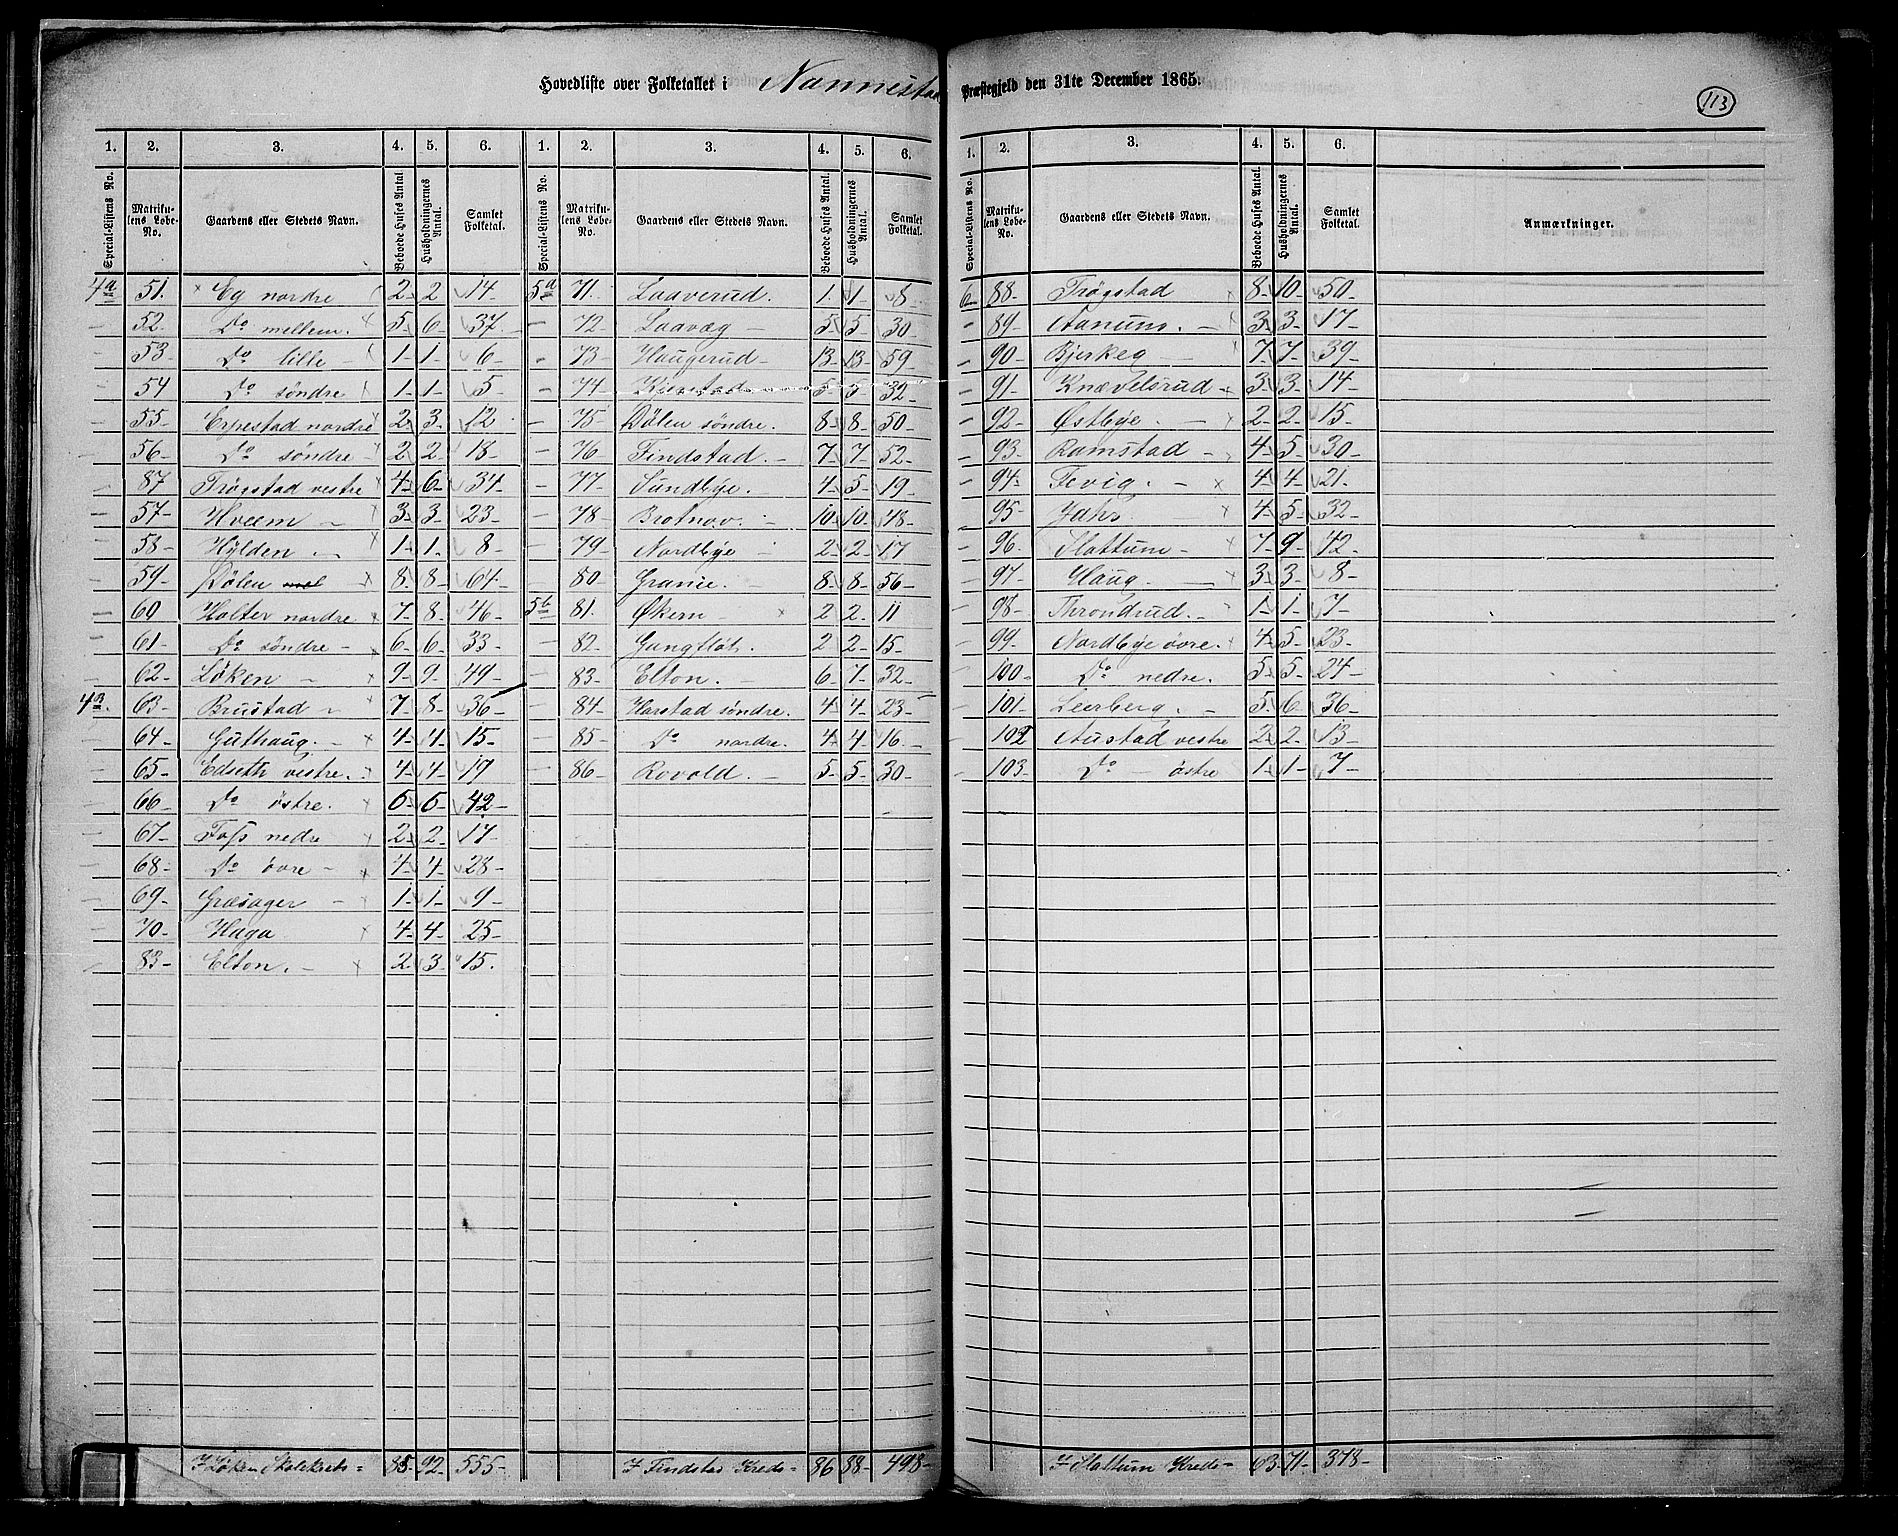 Hovedliste over Folketallet i Nannestad Præstegjeld den 31te December 1865.
113
1. 2. 3. 4. 5. 6. 1. 2. 3. 4. 5. 6.
Special-Listens No. Matrikulens Løbe-No. Gaardens eller Stedets Navn. Beboede Huses Antal. Husholdningernes Antal. Samlet Folketal. Special-Listens No. Matrikulens Løbe-No. Gaardens eller Stedets Navn. Beboede Huses Antal. Husholdningernes Antal. Samlet Folketal.
4a 51. Eg nordre 2 2 14
52. Do mellem. 5 6 37
53 Do lille 1 1 6
54 Do söndre 1 1 5
55 Erpestad nordre 2 3 12
56 Do söndre 2 2 18
87 Trögstad vestre 4 6 34
57 Hveem 3 3 23
58 Hylden 1 1 8
59 Dölen 8 8 64
60 Holter nordre 7 8 46
61 Do söndre 6 6 33
62 Löken 9 9 49
4B. 63 Brustad 7 8 36
64 Guthaug. 4 4 15
65 Edseth vestre. 4 4 19
66 Do östre. 6 6 42
67 Foss nedre 2 2 17
68 Do övre 4 4 28
69 Græsager 1 1 9
70 Haga 4 4 25
83 Elton. 2 3 15.
I Löken Skolekreds 85 92 555
5a 71. Laaverud. 1 1 8
72 Laavæg 5 5 30
73 Haugerud 13 13 59
74 5 5 32
75 Dölen söndre. 8 8 50
76 Findstad. 7 7 52
77 Sundbye. 4 5 19
78 Brotnov. 10 10 48
79 Nordbye 2 2 17
80 Granie. 8 8 56
5b 81. Økern 2 2 11
82. 2 2 15
83 Elton. 6 7 32
84 Harstad söndre. 4 4 23
85 Do nordre. 4 4 16
86 Rovold. 5 5 30
I Findstad Kreds 86 88 498
1. 2. 3. 4. 5. 6.
Special-Listens No. Matrikulens Løbe-No. Gaardens eller Stedets Navn. Beboede Huses Antal. Husholdningernes Antal. Samlet Folketal. Anmærkninger.
6 88 Trögstad 8 10 50
89 Aanum. 3 3 17
90 Bjerkeg 7 7 39
91 Knævelsrud 3 3 14
92 Østbye. 2 2 15
93 Ramstad 4 5 30
94 Tevig. 4 4 21
95 Jahr 4 5 32
96 Slattum 7 9 42
97 Haug. 3 3 8
98 Throndrud. 1 1 7
99 Nordbye övre. 4 5 23
100 Do nedre. 5 5 24
101 Leerberg. 5 6 36
102 Austad vestre 2 2 13
103 Do östre 1 1 7
I Slattum Kreds 63 71 378